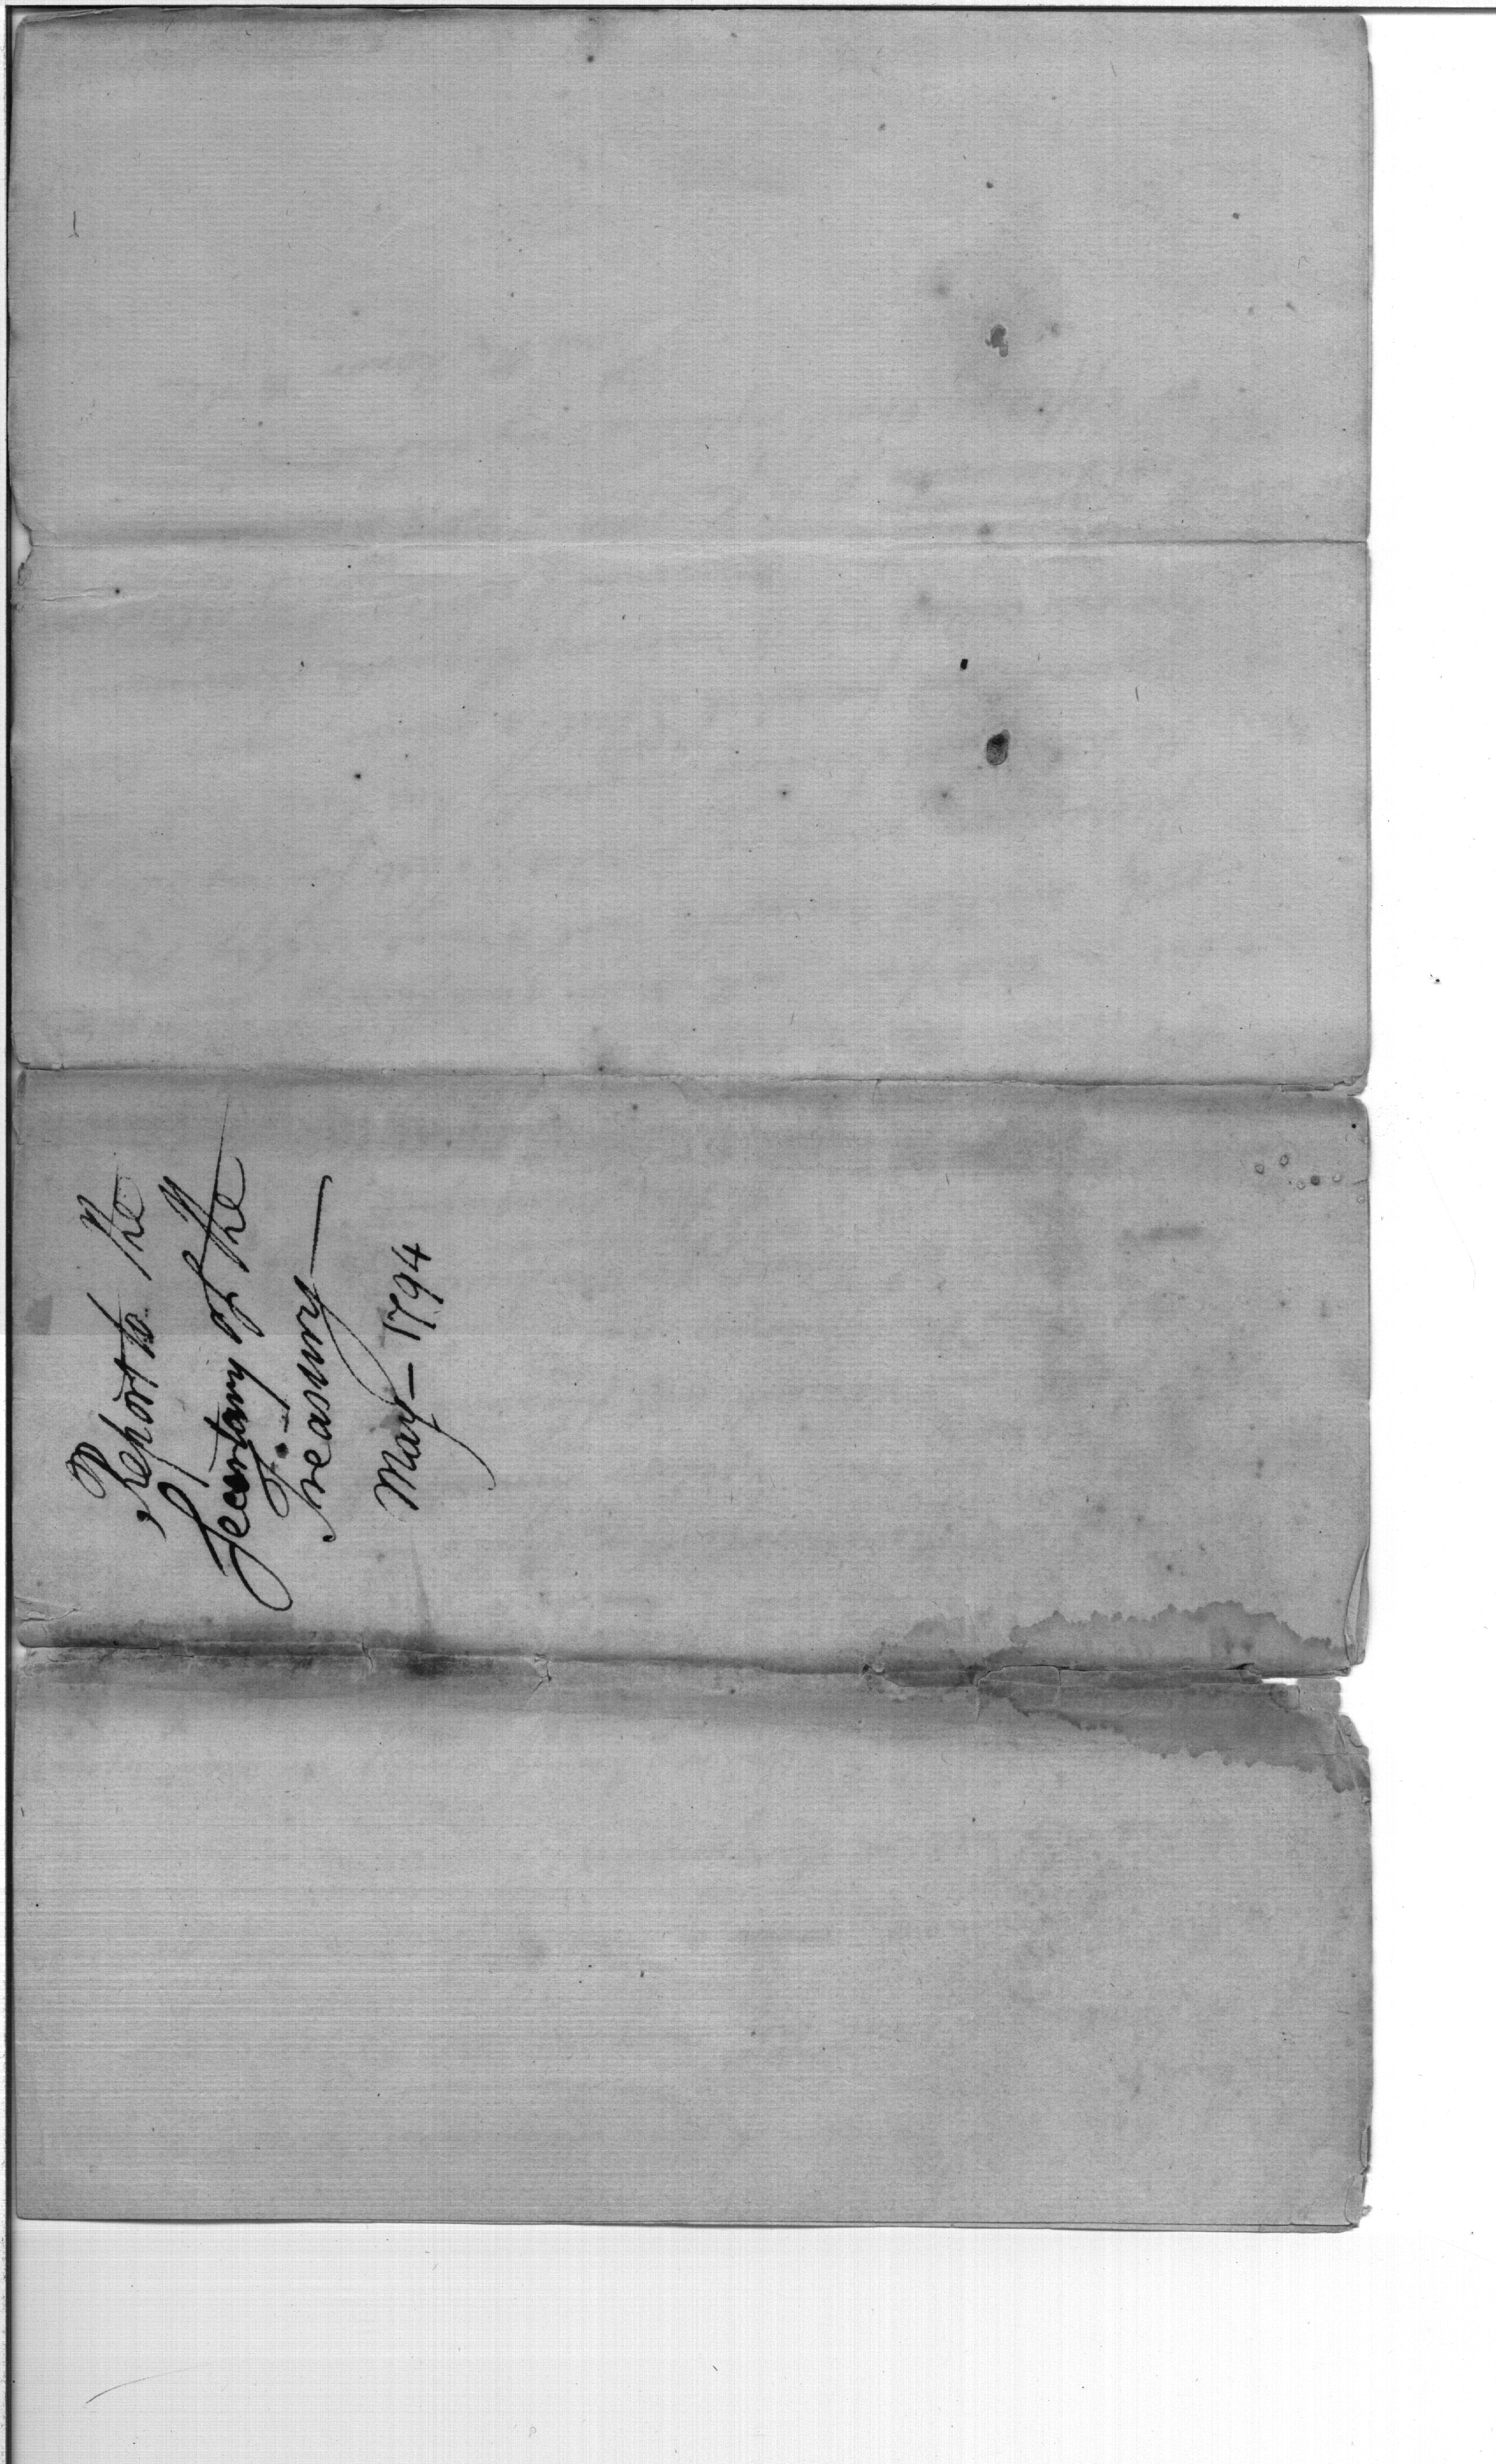 Report to the
Secretary of the
Treasury —
May — 1794